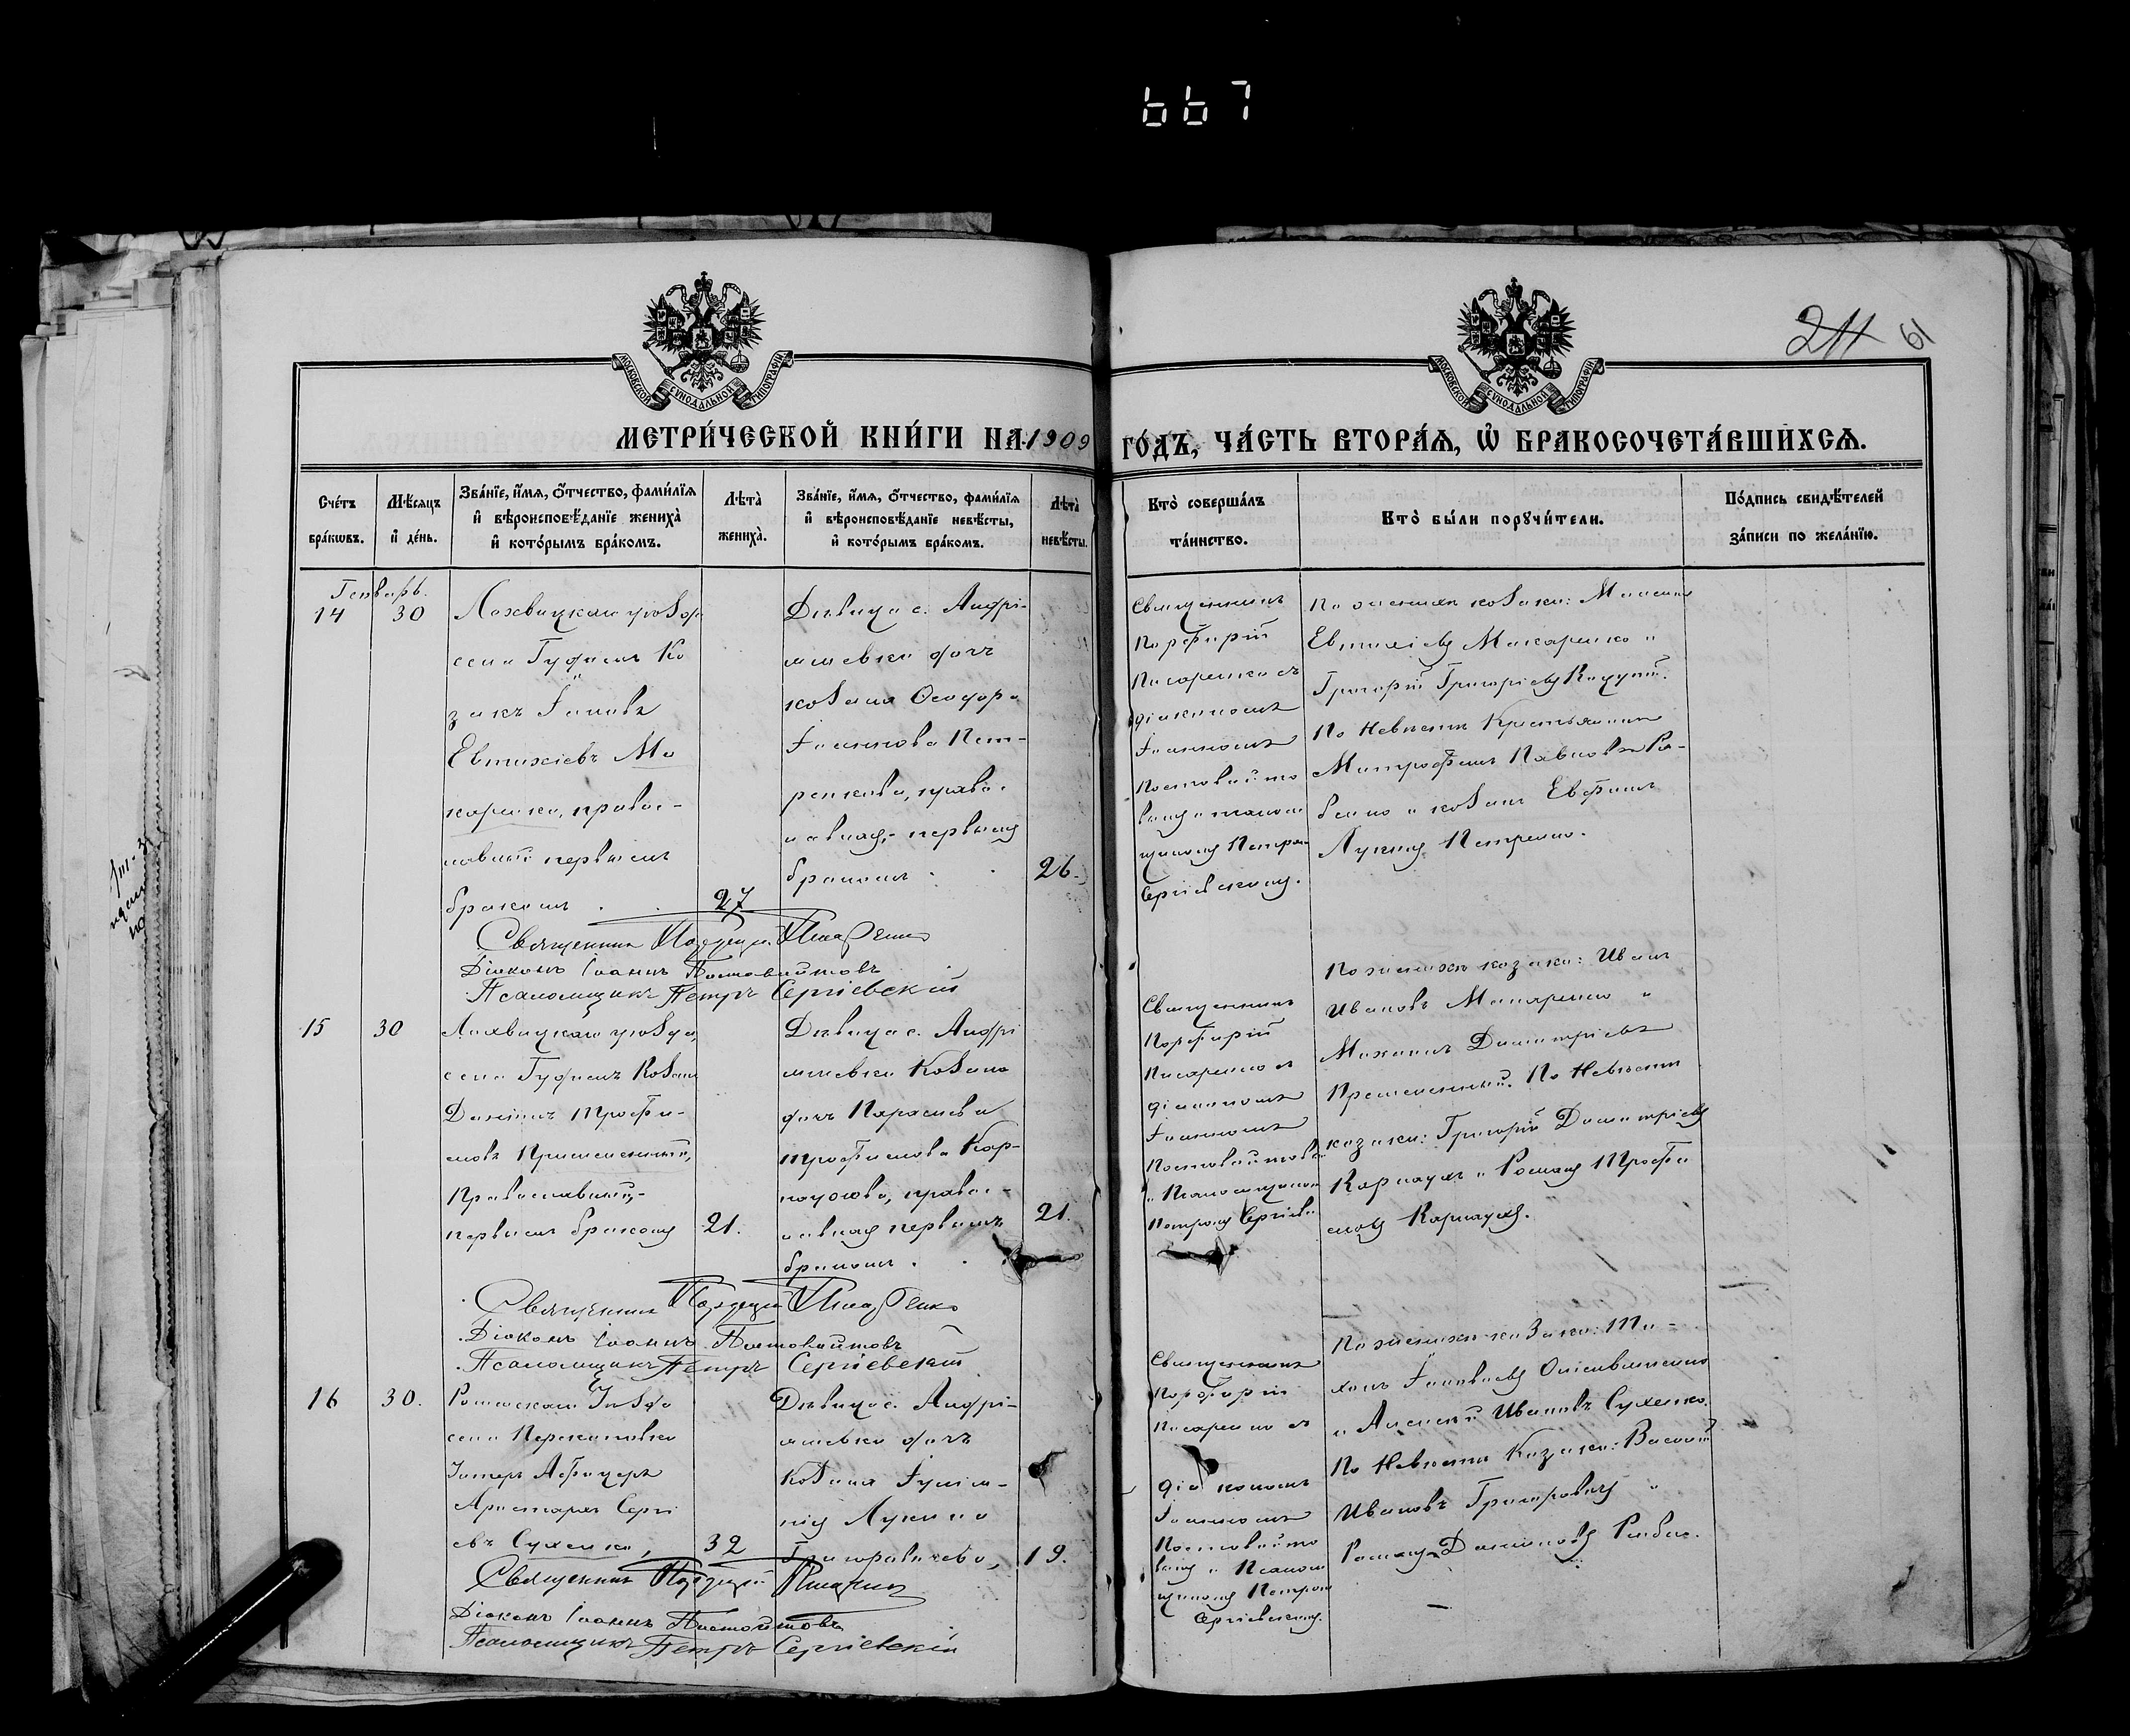 667
211 61
МОСКОВСКОЙ СѴНОДАЛЬНОЙ ТИПОГРАФІИ
МОСКОВСКОЙ СѴНОДАЛЬНОЙ ТИПОГРАФІИ
МЕТРИ́ЧЕСКОЙ КНИ́ГИ НА 1909 ГО́ДЪ, ЧА́СТЬ ВТОРА́Ѧ, Ѡ҆ БРАКОСОЧЕТА́ВШИХСѦ.
Сче́тъ
бра́кѡвъ.
Мѣ́сяцъ
и҆ де́нь.
Зва́нїе, и҆́мѧ, ѻ҆́тчество, фами́лїѧ
и҆ вѣроисповѣ́данїе жениха̀
и҆ кото́рымъ бра́комъ.
Лѣта̀
жениха̀.
Зва́нїе, и҆́мѧ, ѻ҆́тчество, фами́лїѧ
и҆ вѣроисповѣ́данїе невѣ́сты,
и҆ кото́рымъ бра́комъ.
Лѣта̀
невѣ́сты.
Кто̀ соверша́лъ
та́инство.
Кто̀ бы́ли порꙋчи́тели.
По́дпись свидѣ́телей
за́писи по жела́нїю.
Генварь.
14
30
Лохвицкаго уѣзда
села Гудимъ Ко
закъ Іаковъ
Евтихіевъ Ма
каренко, правос-
лавный первымъ
бракомъ
27
Дѣвица с. Андрі-
яшевки дочь
козака Ѳеодора
Іоаннова Пет-
ренкова, право-
славная, первымъ
бракомъ
26.
Священникъ
Порфирій
Писаренко съ
діакономъ
Іоанномъ
Постовойто
вымъ и псалом
щикомъ Петромъ
Сергіевскимъ.
По женихѣ козаки:
Евтихіевъ Макаренко и
Григорій Григорьевъ
По невѣстѣ Крестьянинъ
Митрофанъ Павловъ Ря-
бенко и козакъ Ефимъ
Лукинъ Петренко.
Священникъ Порфирій Писаренко
Діаконъ Іоаннъ Постовойтовъ
Псаломщикъ Петръ Сергіевскій
15
30
Лохвицкаго уѣзда,
села Гудимъ Козакъ
Даніилъ Трофи-
мовъ
Православный,-
первымъ бракомъ
21.
Дѣвица с. Андрі
яшевки Козака
дочь Параскева
Трофимова Кар-
наухова, правос-
лавная первымъ
бракомъ
21.
Священникъ
Порфирій
Писаренко съ
діакономъ
Іоанномъ
Постовойтовы
и Псаломщикомъ
Петромъ Сергіевс
По женихѣ козаки: Иванъ
Ивановъ Макаренко и
Михаилъ Димитріевъ
По невѣстѣ
козаки: Григорій Димитріевъ
Карнаухъ и Романъ Трофи
мовъ Карнаухъ.
Священникъ Порфирій Писаренко
Діаконъ Іоаннъ Постовойтовъ
Псаломщикъ Петръ Сергіевскій
16
30.
Роменскаго Уѣзда
села Перекоповки
Унтеръ Афицеръ
Аристархъ Сергі
евъ Сухенко,
32
Дѣвица с. Андрі-
яшевки дочь
Козака
Лукина
Григоровичева,
19.
Священникъ
Порфирій
Писаренко съ
діакономъ
Іоанномъ
Постовойто
вымъ и Псалом
щикомъ Петромъ
Сергіевскимъ.
По женихѣ козаки: Ти-
хонъ
и Алексѣй Ивановъ Сухенко.
По невѣстѣ Козаки: Василій
Ивановъ Григоровичъ и
Романъ
Священникъ Порфирій Писаренко
Діаконъ Іоаннъ Постовойтовъ
Псаломщикъ Петръ Сергіевскій